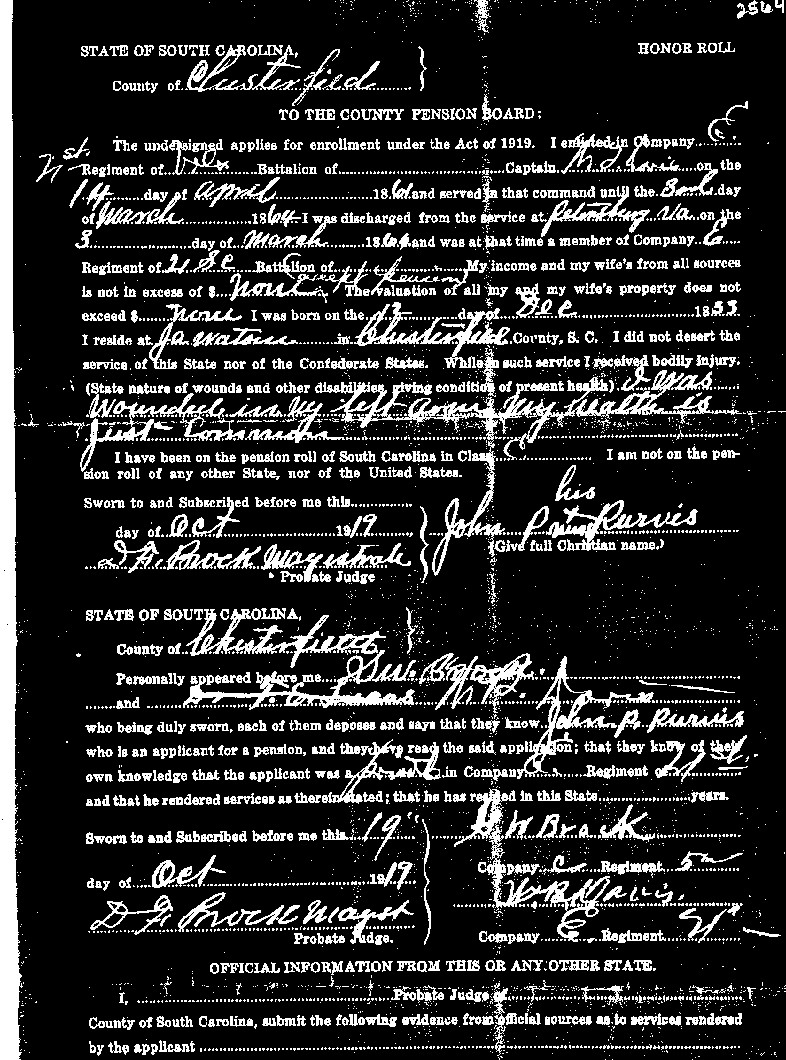 2564
STATE OF SOUTH CAROLINA, HONOR ROLL
County of Chesterfield
TO THE COUNTY PENSION BOARD:
The undersigned applies for enrollment under the Act of 1919. I enlisted in Company E
Regiment of Battalion of Captain on the
14 day of April 1861 and served in that command until the 3rd day
of March 1864 I was discharged from the service at Petersburg Va on the
3 day of March 1864 and was at that time a member of Company E
Regiment of 21 SC Battalion of My income and my wife's from all sources
is not in excess of $ None except pension The valuation of all my and my wife's property does not
exceed $ None I was born on the day of Dec 1853
I reside at in Chesterfield County, S. C. I did not desert the
service of this State nor of the Confederate States. While in such service I received bodily injury.
(State nature of wounds and other disabilities, giving condition of present health) I was
Wounded in my left arm My health is
Just Common
I have been on the pension roll of South Carolina in Class C I am not on the pen-
sion roll of any other State, nor of the United States.
Sworn to and Subscribed before me this
his
day of Oct 1919 John Purvis
(Give full Christian name.)
D. F. Brock Magistrate
Probate Judge
STATE OF SOUTH CAROLINA,
County of Chesterfield
Personally appeared before me
and
who being duly sworn, each of them deposes and says that they know John P. Purvis
who is an applicant for a pension, and they have read the said application; that they know of their
own knowledge that the applicant was a in Company E Regiment of 21st
and that he rendered services as therein stated; that he has resided in this State years.
Sworn to and Subscribed before me this 19 W Brock
Company C Regiment 5
day of Oct 1919
W. B. Davis.
D F Brock Magst
Probate Judge. Company E Regiment
OFFICIAL INFORMATION FROM THIS OR ANY OTHER STATE.
I, Probate Judge of
County of South Carolina, submit the following evidence from official sources as to services rendered
by the applicant